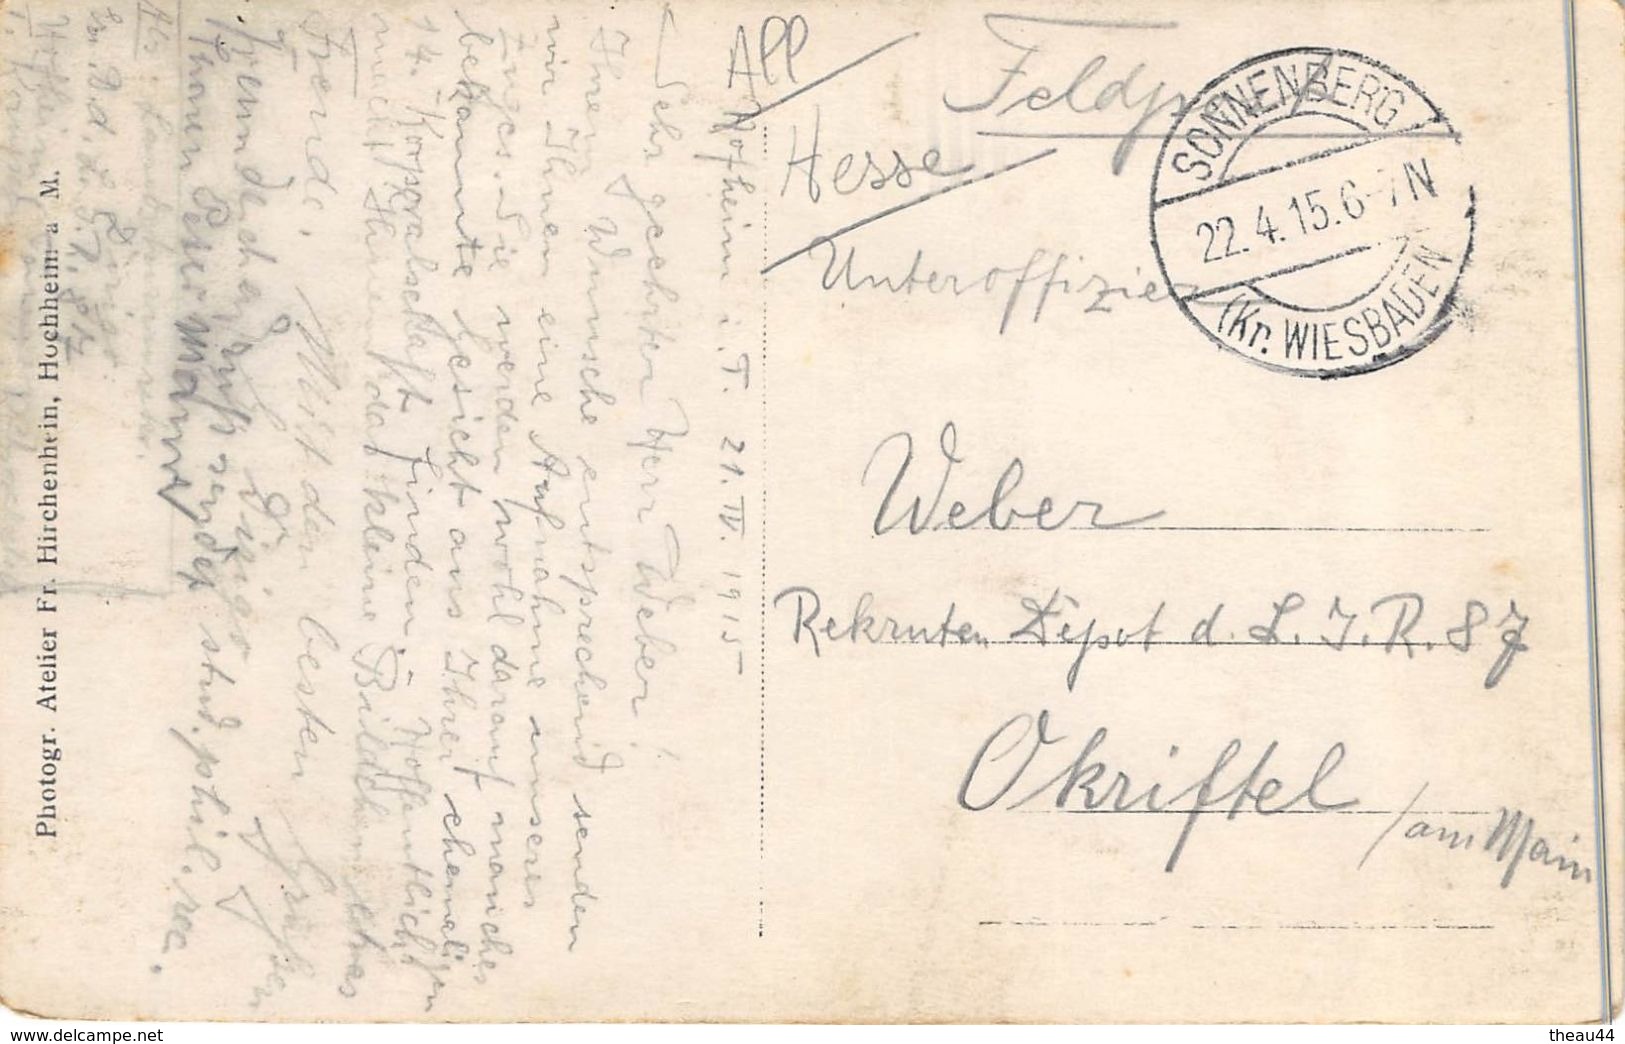 All
Hesse
Feldpost
SONNENBERG
22.4.15.6-7N
(Kr. WIESBADEN
Unteroffizier
Weber
Rekruten Depot d. L. I. R. 87
Okriftel
/am Main
Hofheim i. T. 21. IV. 1915
Sehr geehrter Herr Weber!
Ihrem Wunsche entsprechend senden
wir Ihnen eine Aufnahme unseres
Zuges. Sie werden wohl darauf manches
bekannte Gesicht aus Ihrer ehemaligen
14. Korporalschaft finden. Hoffentlich
macht Ihnen das kleine Bildchen etwas
Freude. Mit den besten Grüßen
Ihnen
sendet stud. phil. rec.
Photogr. Atelier Fr. Hirchenhein, Hochheim a M.
www.delcampe.net
theau44